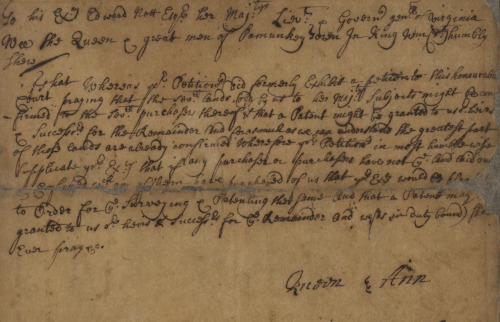 To his Ex^cy Edward Nott Esq^r her Maj^tys Liev^t & Govern^r gen^ll of Virginia
Wee the Queen & great men of Pamunkey Town In King W^m humbly
Shew
That Whereas yo^r Petition^rs did formerly Exhibit a petition to this honourable
Court praying that the sev^ll lands to her Maj^tys Subjects might be con
firmed to the sev^ll purchasers thereof & that a Patent might be granted to us o^r heirs
& Success^rs for the Remainder And forasmuch as we understand the greatest part
of those lands are already confirmed Wherefore yo^r Petition^rs in most humble wise
Supplicate yo^r Ex^cy that if any purchaser or purchasers have not
of them purchased of us that yo^r Ex^cy would be
to Order for y^e Surveying & Patenting the same And that a Patent may
granted to us o^r heirs & Success^rs for y^e Remainder And wee as in duty bound
Ever pray &c.
Queen & Ann